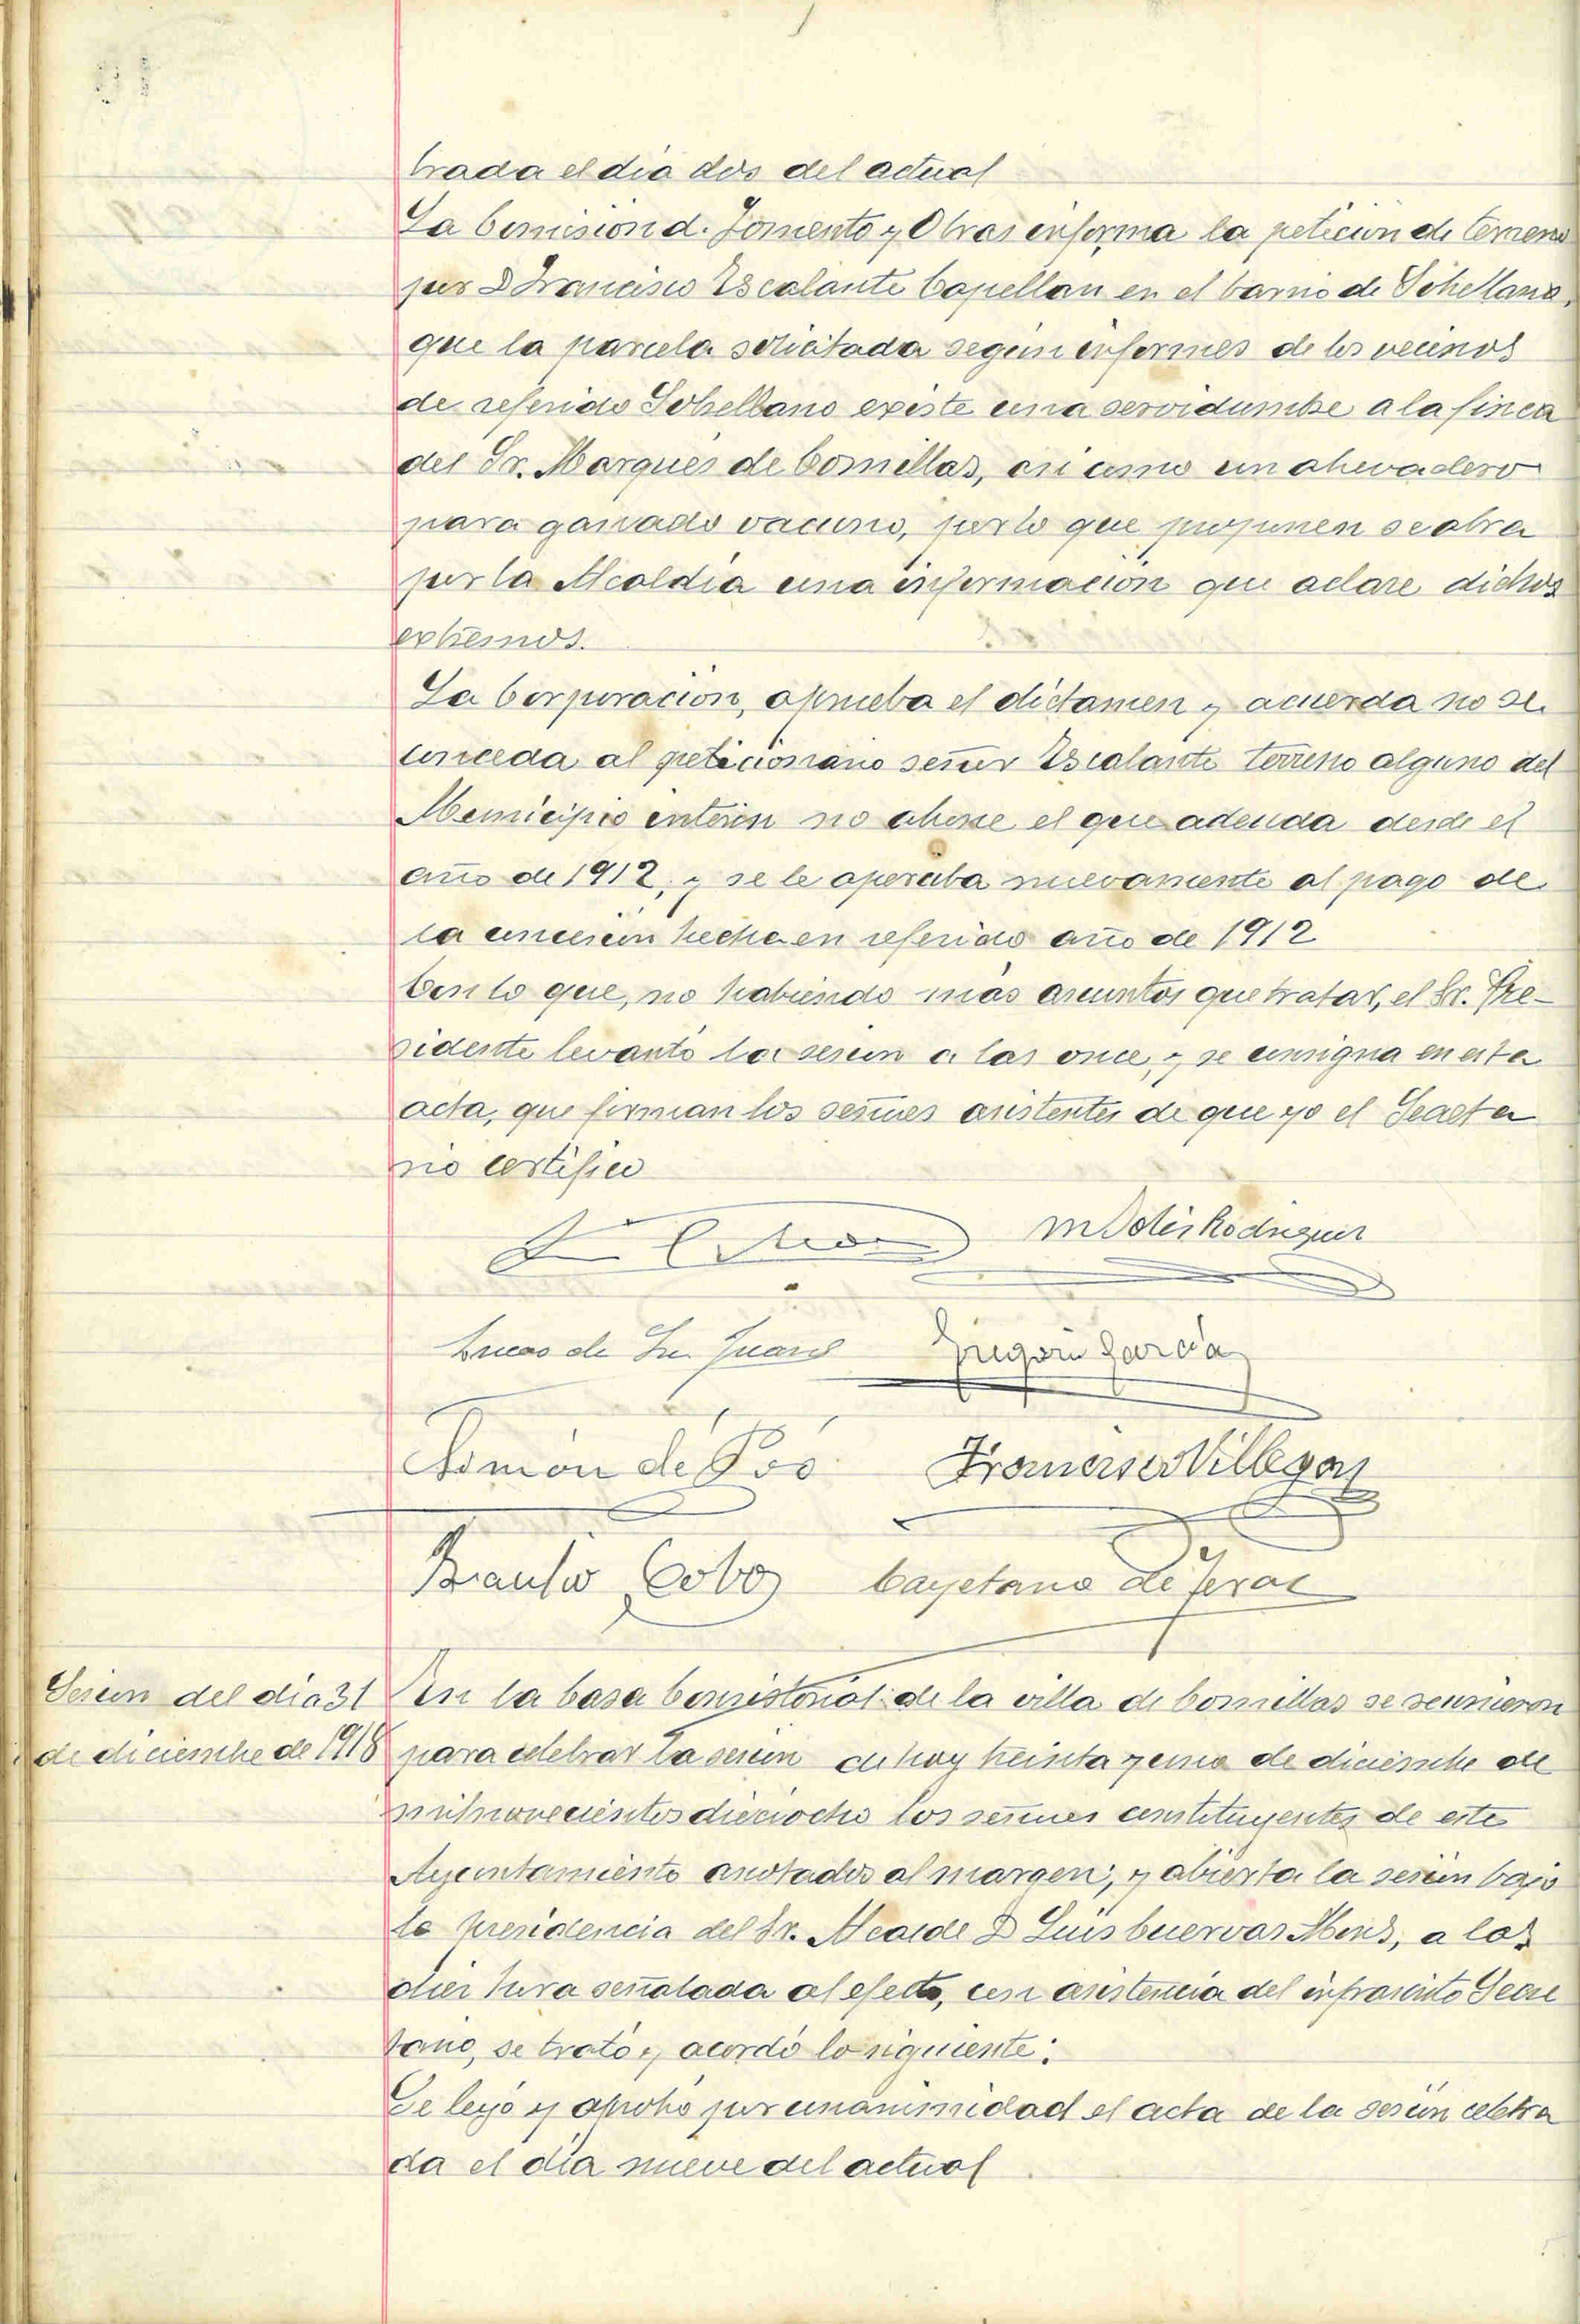 brada el dia dos del actual
La Comision de Fomento y Obras informa la peticion de terreno
por D Francisco Escalante Capellan en el barrio de Sobellano,
que la parcela solicitada segun informes de los vecinos
de referido Sobellano existe una servidumbre a la finca
del Sr. Marques de Comillas, asi como un abrevadero
para ganado vacuno, por lo que proponen se abra
por la Alcaldia una informacion que aclare dichos
extremos.
La Corporacion, aprueba el dictamen y acuerda no se
conceda al peticionario señor Escalante terreno alguno del
Municipio interin no abone el que adeuda desde el
año de 1912, y se le aperciba nuevamente al pago de
la concesion hecha en referido año de 1912
Con lo que, no habiendo más asuntos que tratar, el Sr. Pre-
sidente levantó la sesion a las once, y se consigna en esta
acta, que firman los señores asistentes de que yo el Secreta
rio certifico
M Solis Rodriguez
Lucas de San Juan Gregorio Garcia
Simón de Poo Francisco Villegas
Braulio Cobo Cayetano de Teran
Sesion del dia 31
de diciembre de 1918
En la Casa Consistorial de la villa de Comillas se reunieron
para celebrar la sesion de hoy treinta y uno de diciembre de
mil novecientos dieciocho los señores constituyentes de este
Ayuntamiento anotados al margen; y abierta la sesion bajo
la presidencia del Sr. Alcalde D Luis Cuervas Mons, a las
diez hora señalada al efecto, con asistencia del infrascrito Secre
tario, se trató y acordó lo siguiente:
Se leyó y aprobó por unanimidad el acta de la sesion celebra
da el día nueve del actual